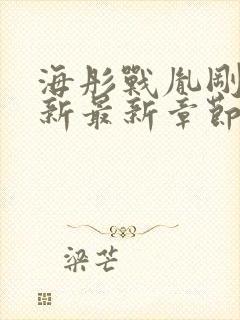 海彤戰胤剛
新最新章節
梁芒